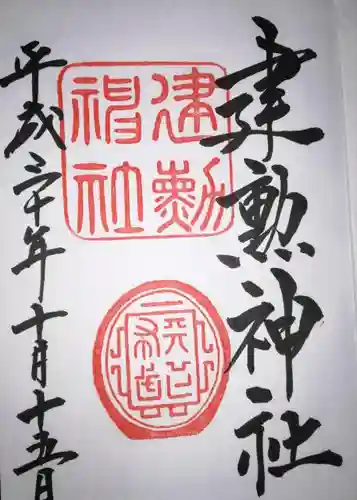 建勲神社
建勲
神社
平成三十年十月十五日